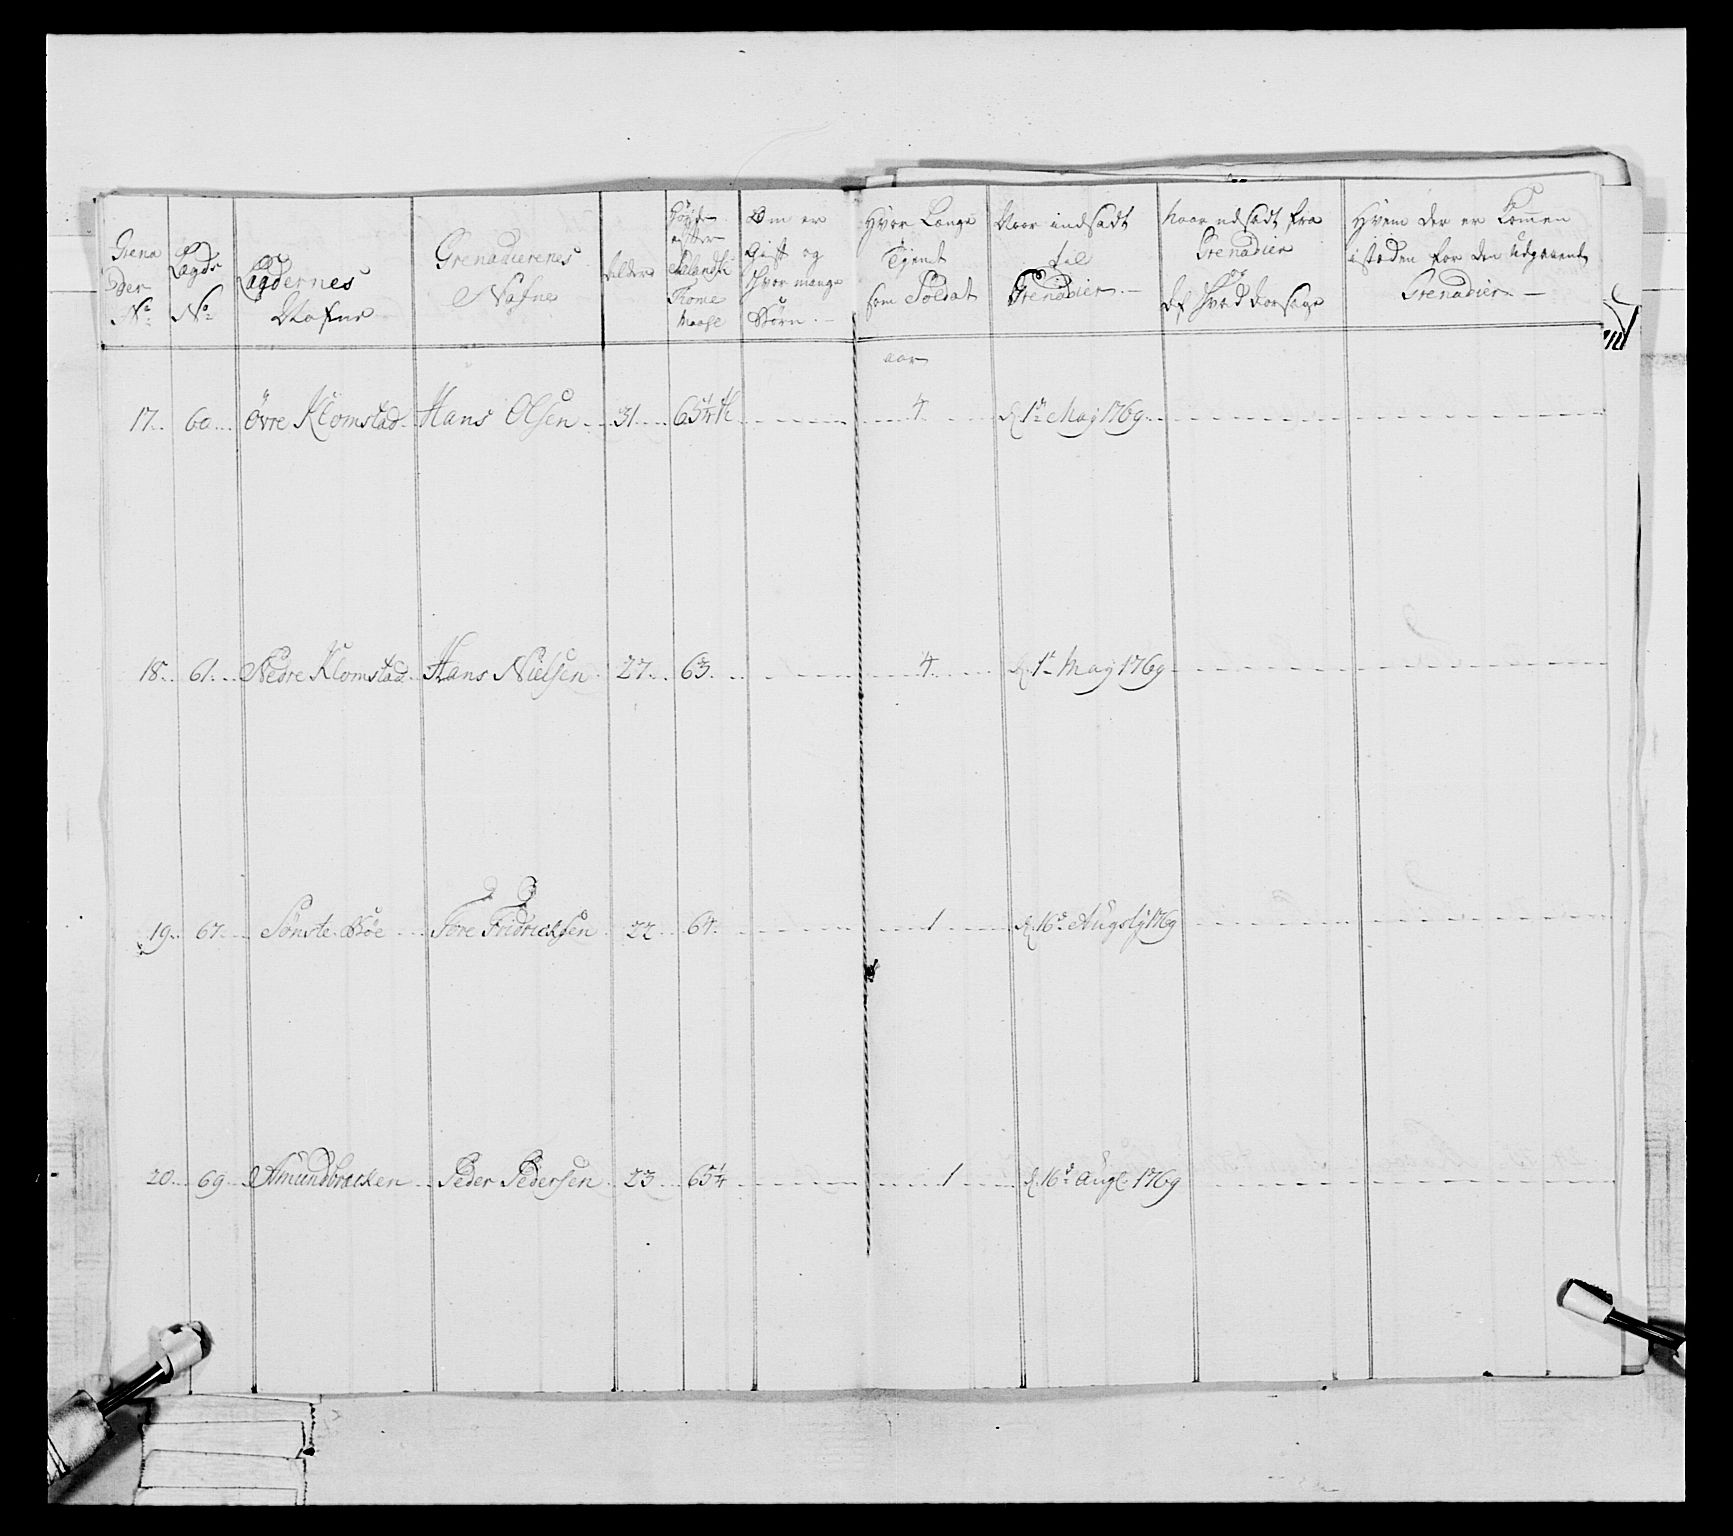 Grena
der
No
Lægds
No
Lægdernes
Nafne
Grenadierenes
Nafne
Alder
Høyde
efter
Sælandsk
Tome
Maase
Om er
Gift og
Hvor mange
Børn.
Hvor Længe
Tient
som Soldat
Naar indsadt
til
Grenadier.
Naar udsadt fra
Grenadier
og
af Hvad Aarsage
Hvem der er Kommen
isteden for den udgaaende
Grenadier
aar
17. 60. Øvre Klomstad Hans Olsen 31 65 1/4 4 d. 1te Maij 1769
18. 61. Nedre Klomstad Hans Nielsen 27 63 4 d. 1te Maij 1769
19. 67. Sønste Bøe Tore Fridrichsen 22 64 1 d. 16de Augsty 1769
20. 69. Amundbracken Peder Pedersen 23 65 1/4 1 d. 16de Augs. 1769